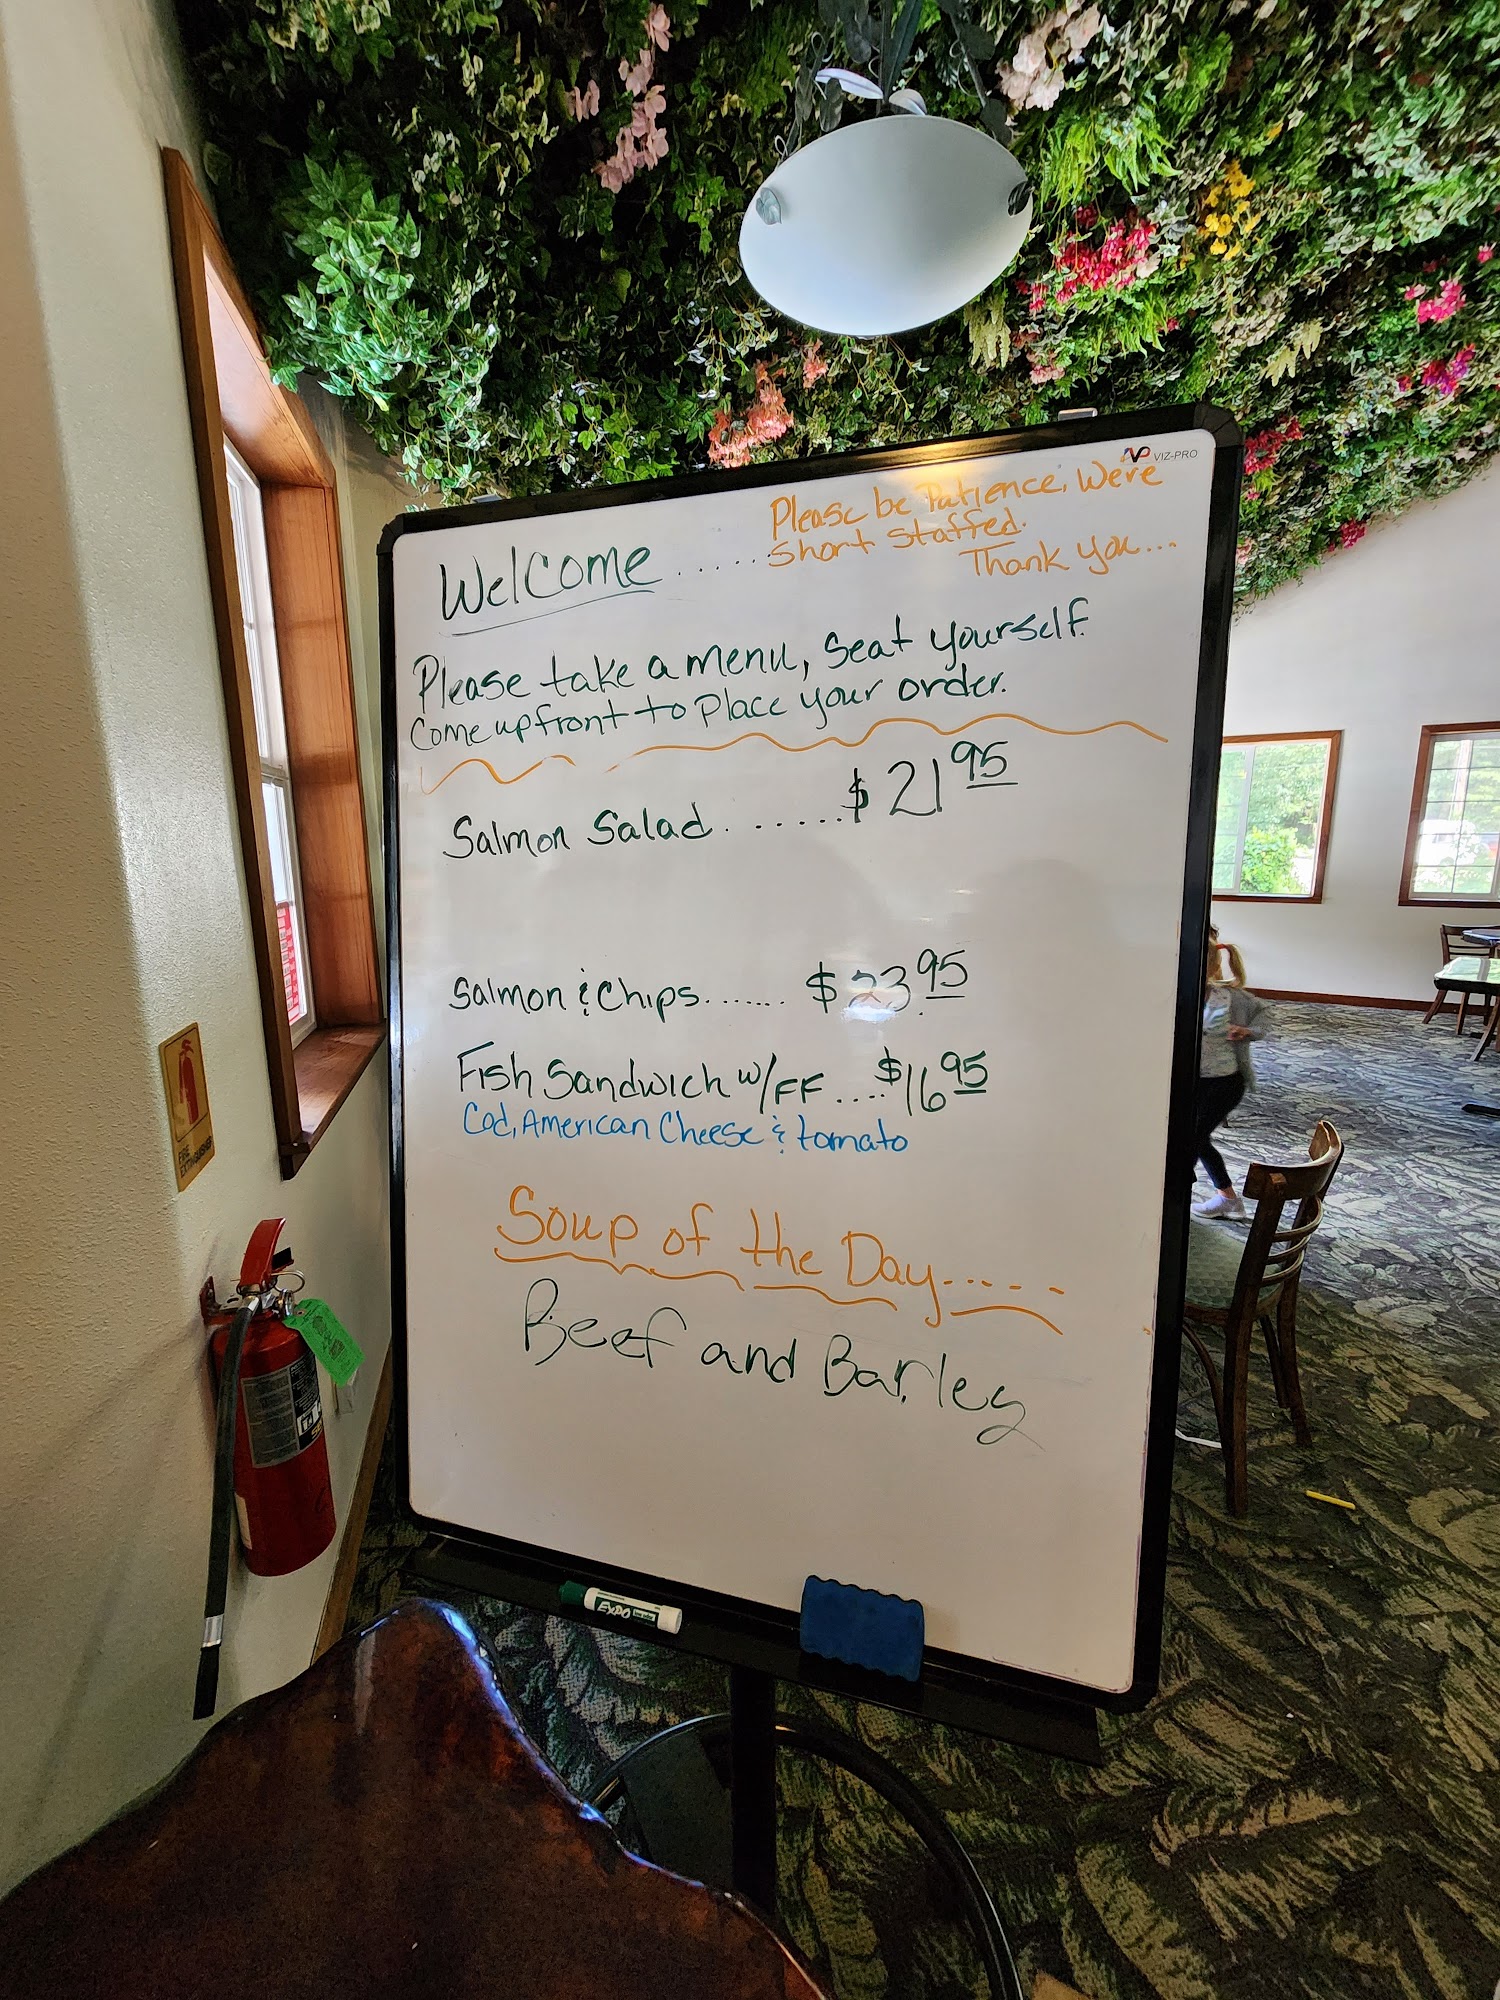 VIZ-PRO
Please be Patience, We're
Welcome ......short staffed.
Thank you...
Please take a menu, seat yourself.
Come up front to place your order.
Salmon Salad ....... $21 95
Salmon & Chips....... $23.95
Fish Sandwich w/FF .... $16 95
Cod, American Cheese & tomato
Soup of the Day.....
Beef and Barley
FIRE
EXTINGUISHER
EXPO